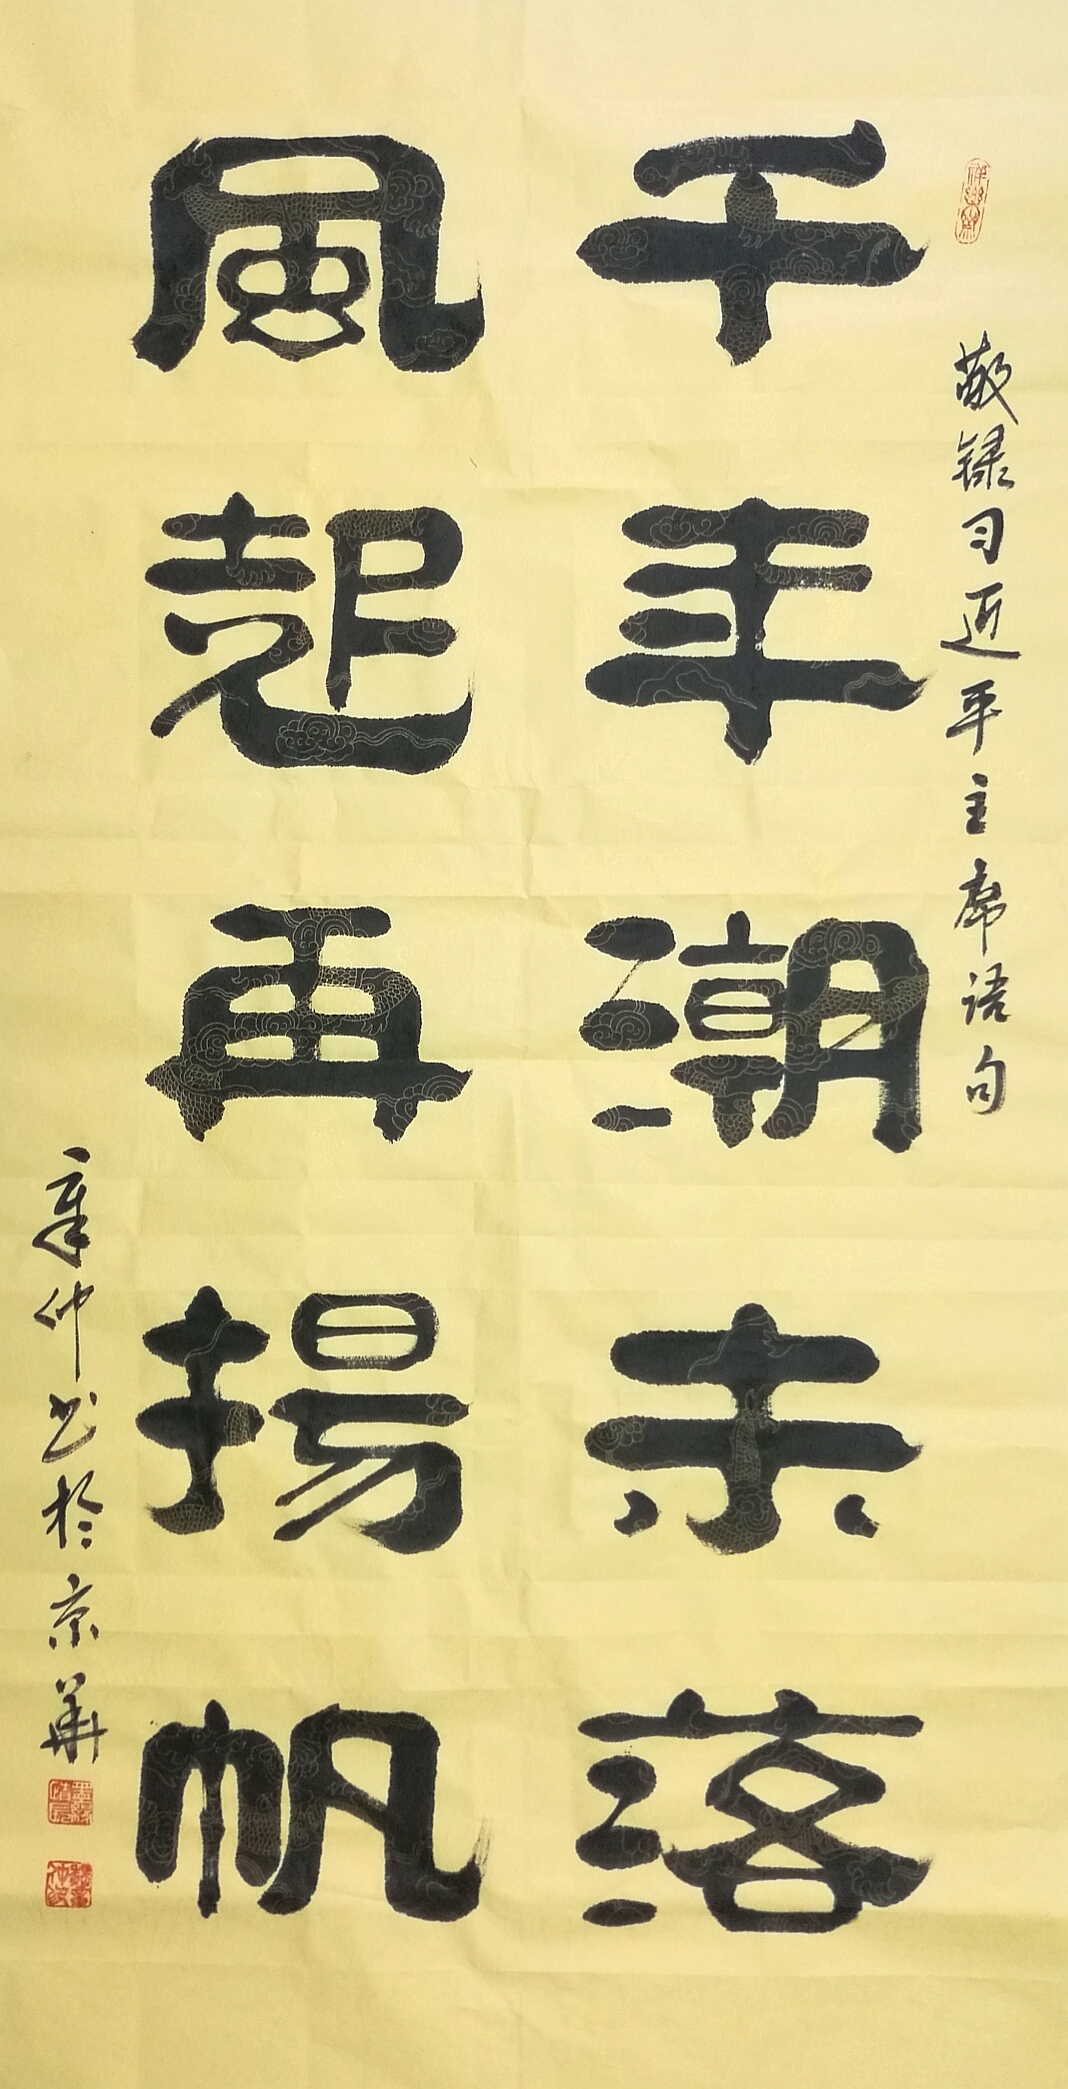 敬录习近平主席语句
千年潮未落
風起再揚帆
章仲书於京華